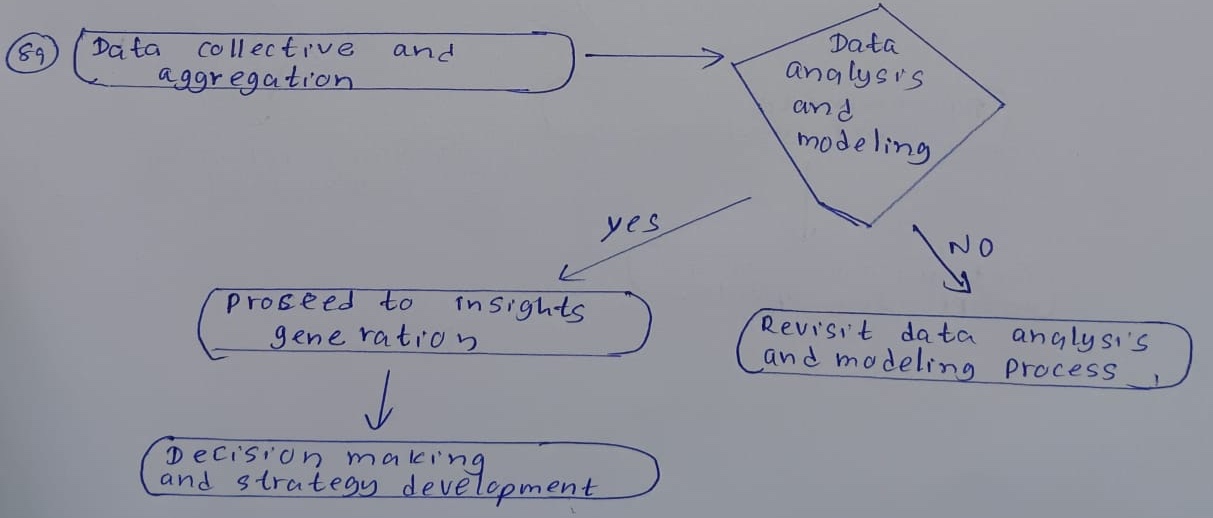 89
Data collective and
aggregation
Data
analysis
and
modeling
yes
NO
proseed to insights
generation
Revisit data analysis
and modeling process
Decision making
and strategy development